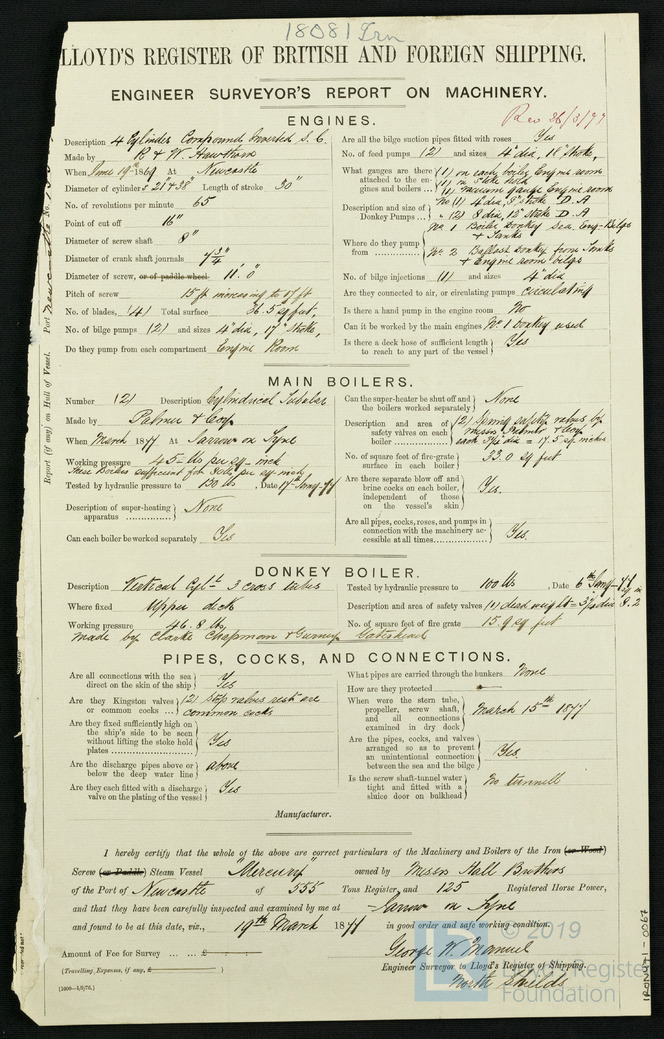 18081 Irn
LLOYD'S REGISTER OF BRITISH AND FOREIGN SHIPPING.
ENGINEER SURVEYOR'S REPORT ON MACHINERY.
Rec 26/3/77
ENGINES.
Description 4 Cylinder Compound Inverted S. C.
Made by R & W. Hawthorn
When June 19th 1869 At Newcastle
Diameter of cylinders 21" & 38" Length of stroke 30"
No. of revolutions per minute 65
Point of cut off 16"
Diameter of screw shaft 8"
Diameter of crank shaft journals 7 3/4"
Diameter of screw, or of paddle wheel 11' 0"
Pitch of screw 15 ft increasing to 17 ft
No. of blades, (4) Total surface 36.5 sq feet,
No. of bilge pumps (2) and sizes 4" dia, 17" stroke,
Do they pump from each compartment Engine Room
Are all the bilge suction pipes fitted with roses Yes
No. of feed pumps (2) and sizes 4" dia, 18" stoke,
What gauges are there attached to the engines and boilers ... (1) on each boiler Engine room
(1) in stoke hold
(1) vacuum gauge Engine room
Description and size of Donkey Pumps ... No (1) 4" dia, 8" stoke D. A
" (2) 8" dia, 12" stoke D. A
Where do they pump from ............ No 1 Boiler donkey sea, Eng-Bilges
& Tanks
No 2 Ballast donkey from Tanks
& Engine room bilges
No. of bilge injections (1) and sizes 4" dia
Are they connected to air, or circulating pumps circulating
Is there a hand pump in the engine room No
Can it be worked by the main engines No 1 donkey used
Is there a deck hose of sufficient length to reach to any part of the vessel Yes
Port Newcastle No.
Report (if any) on Hull of Vessel.
MAIN BOILERS.
Number (2) Description Cylindrical Tubular
Made by Palmer & Coy
When March 1877 At Jarrow on Tyne
Working pressure 45 lbs per sq inch
These Boilers sufficient for lbs per sq inch
Tested by hydraulic pressure to 130 lbs, Date 17th Jany-77
Description of super-heating apparatus ............ None
Can each boiler be worked separately Yes
Can the super-heater be shut off and the boilers worked separately None
Description and area of safety valves on each boiler ............ (2) Spring safety valves by
Messrs & Coy
each 3 1/2" dia = 17.5 sq inches
No. of square feet of fire-grate surface in each boiler 33.0 sq feet
Are there separate blow off and brine cocks on each boiler, independent of those on the vessel's skin Yes.
Are all pipes, cocks, roses, and pumps in connection with the machinery accessible at all times ............ Yes.
DONKEY BOILER.
Description Vertical Cyl! 3 cross tubes
Where fixed Upper deck
Working pressure 46.8 lbs,
made by Clarke Chapman & Gurney Gateshead
Tested by hydraulic pressure to 100 lbs, Date 6th Jany-77
Description and area of safety valves (1) dead weight = 3 1/4 dia 8.2 sq in
No. of square feet of fire grate 15.9 sq feet
PIPES, COCKS, AND CONNECTIONS.
Are all connections with the sea direct on the skin of the ship Yes
Are they Kingston valves or common cocks ... (2) stop valves rest are
common cocks
Are they fixed sufficiently high on the ship's side to be seen without lifting the stoke hold plates ............ Yes
Are the discharge pipes above or below the deep water line above
Are they each fitted with a discharge valve on the plating of the vessel Yes
What pipes are carried through the bunkers None
How are they protected
When were the stern tube, propeller, screw shaft, and all connections examined in dry dock March 15th 1877
Are the pipes, cocks, and valves arranged so as to prevent an unintentional connection between the sea and the bilge Yes.
Is the screw shaft-tunnel water tight and fitted with a sluice door on bulkhead No tunnell
Manufacturer.
I hereby certify that the whole of the above are correct particulars of the Machinery and Boilers of the Iron (or Wood)
Screw (or Paddle) Steam Vessel "Mercury" owned by Messrs Hall Brothers
of the Port of Newcastle of 555 Tons Register, and 125 Registered Horse Power,
and that they have been carefully inspected and examined by me at Jarrow on Tyne
and found to be at this date, viz., 19th March 1877 in good order and safe working condition.
Amount of Fee for Survey ... ... £
(Travelling Expenses, if any, £ )
[1000—1/9/76.]
George W. Manuel
Engineer Surveyor to Lloyd's Register of Shipping.
North Shields
© 2019
Lloyd's Register
Foundation
IRON971-0067